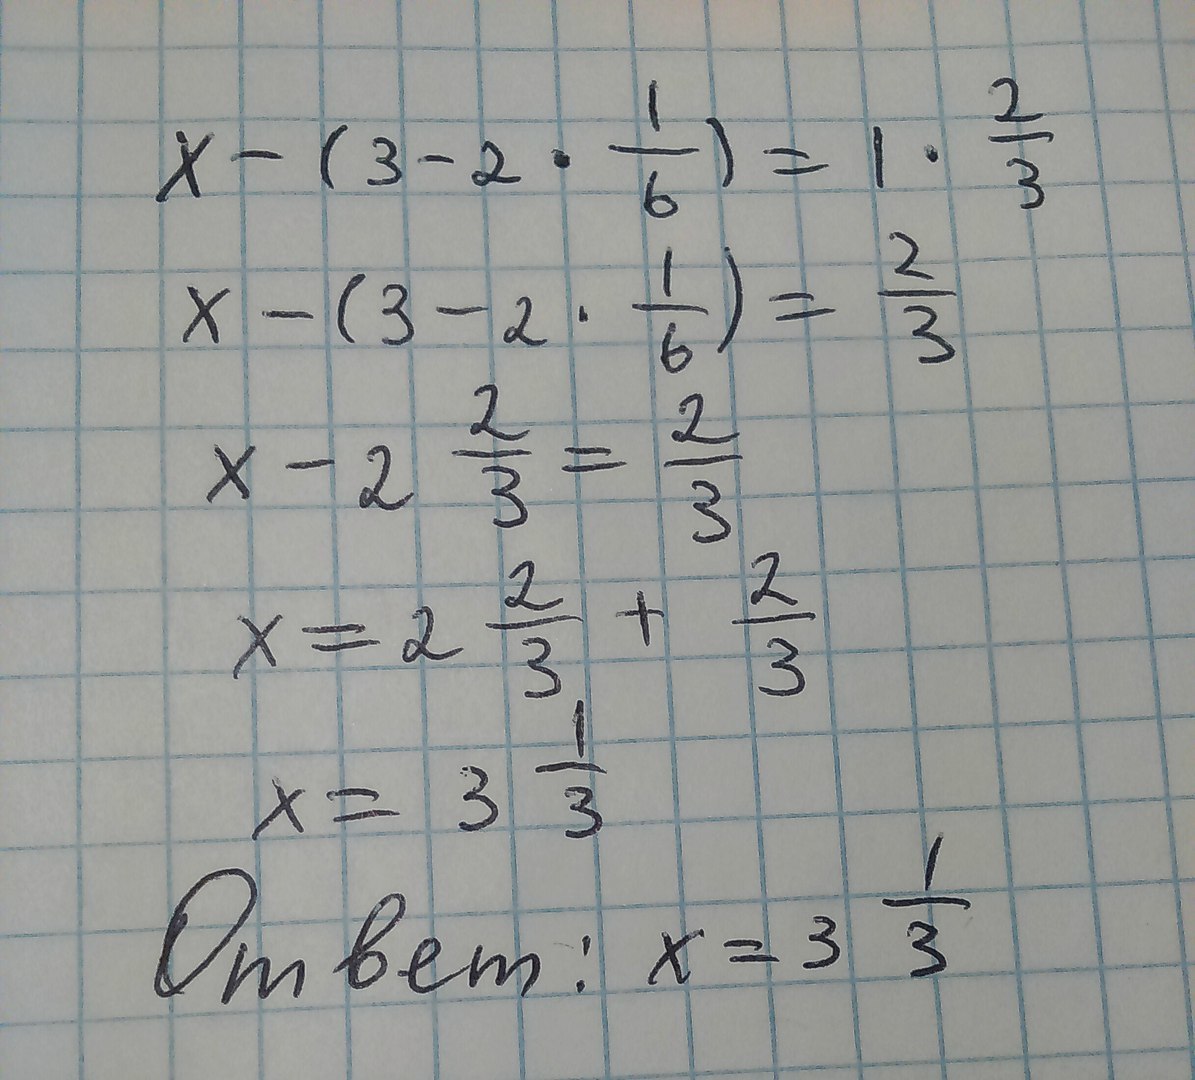 x - (3 - 2 · 1/6) = 1 · 2/3
x - (3 - 2 · 1/6) = 2/3
x - 2 2/3 = 2/3
x = 2 2/3 + 2/3
x = 3 1/3
Ответ: x = 3 1/3